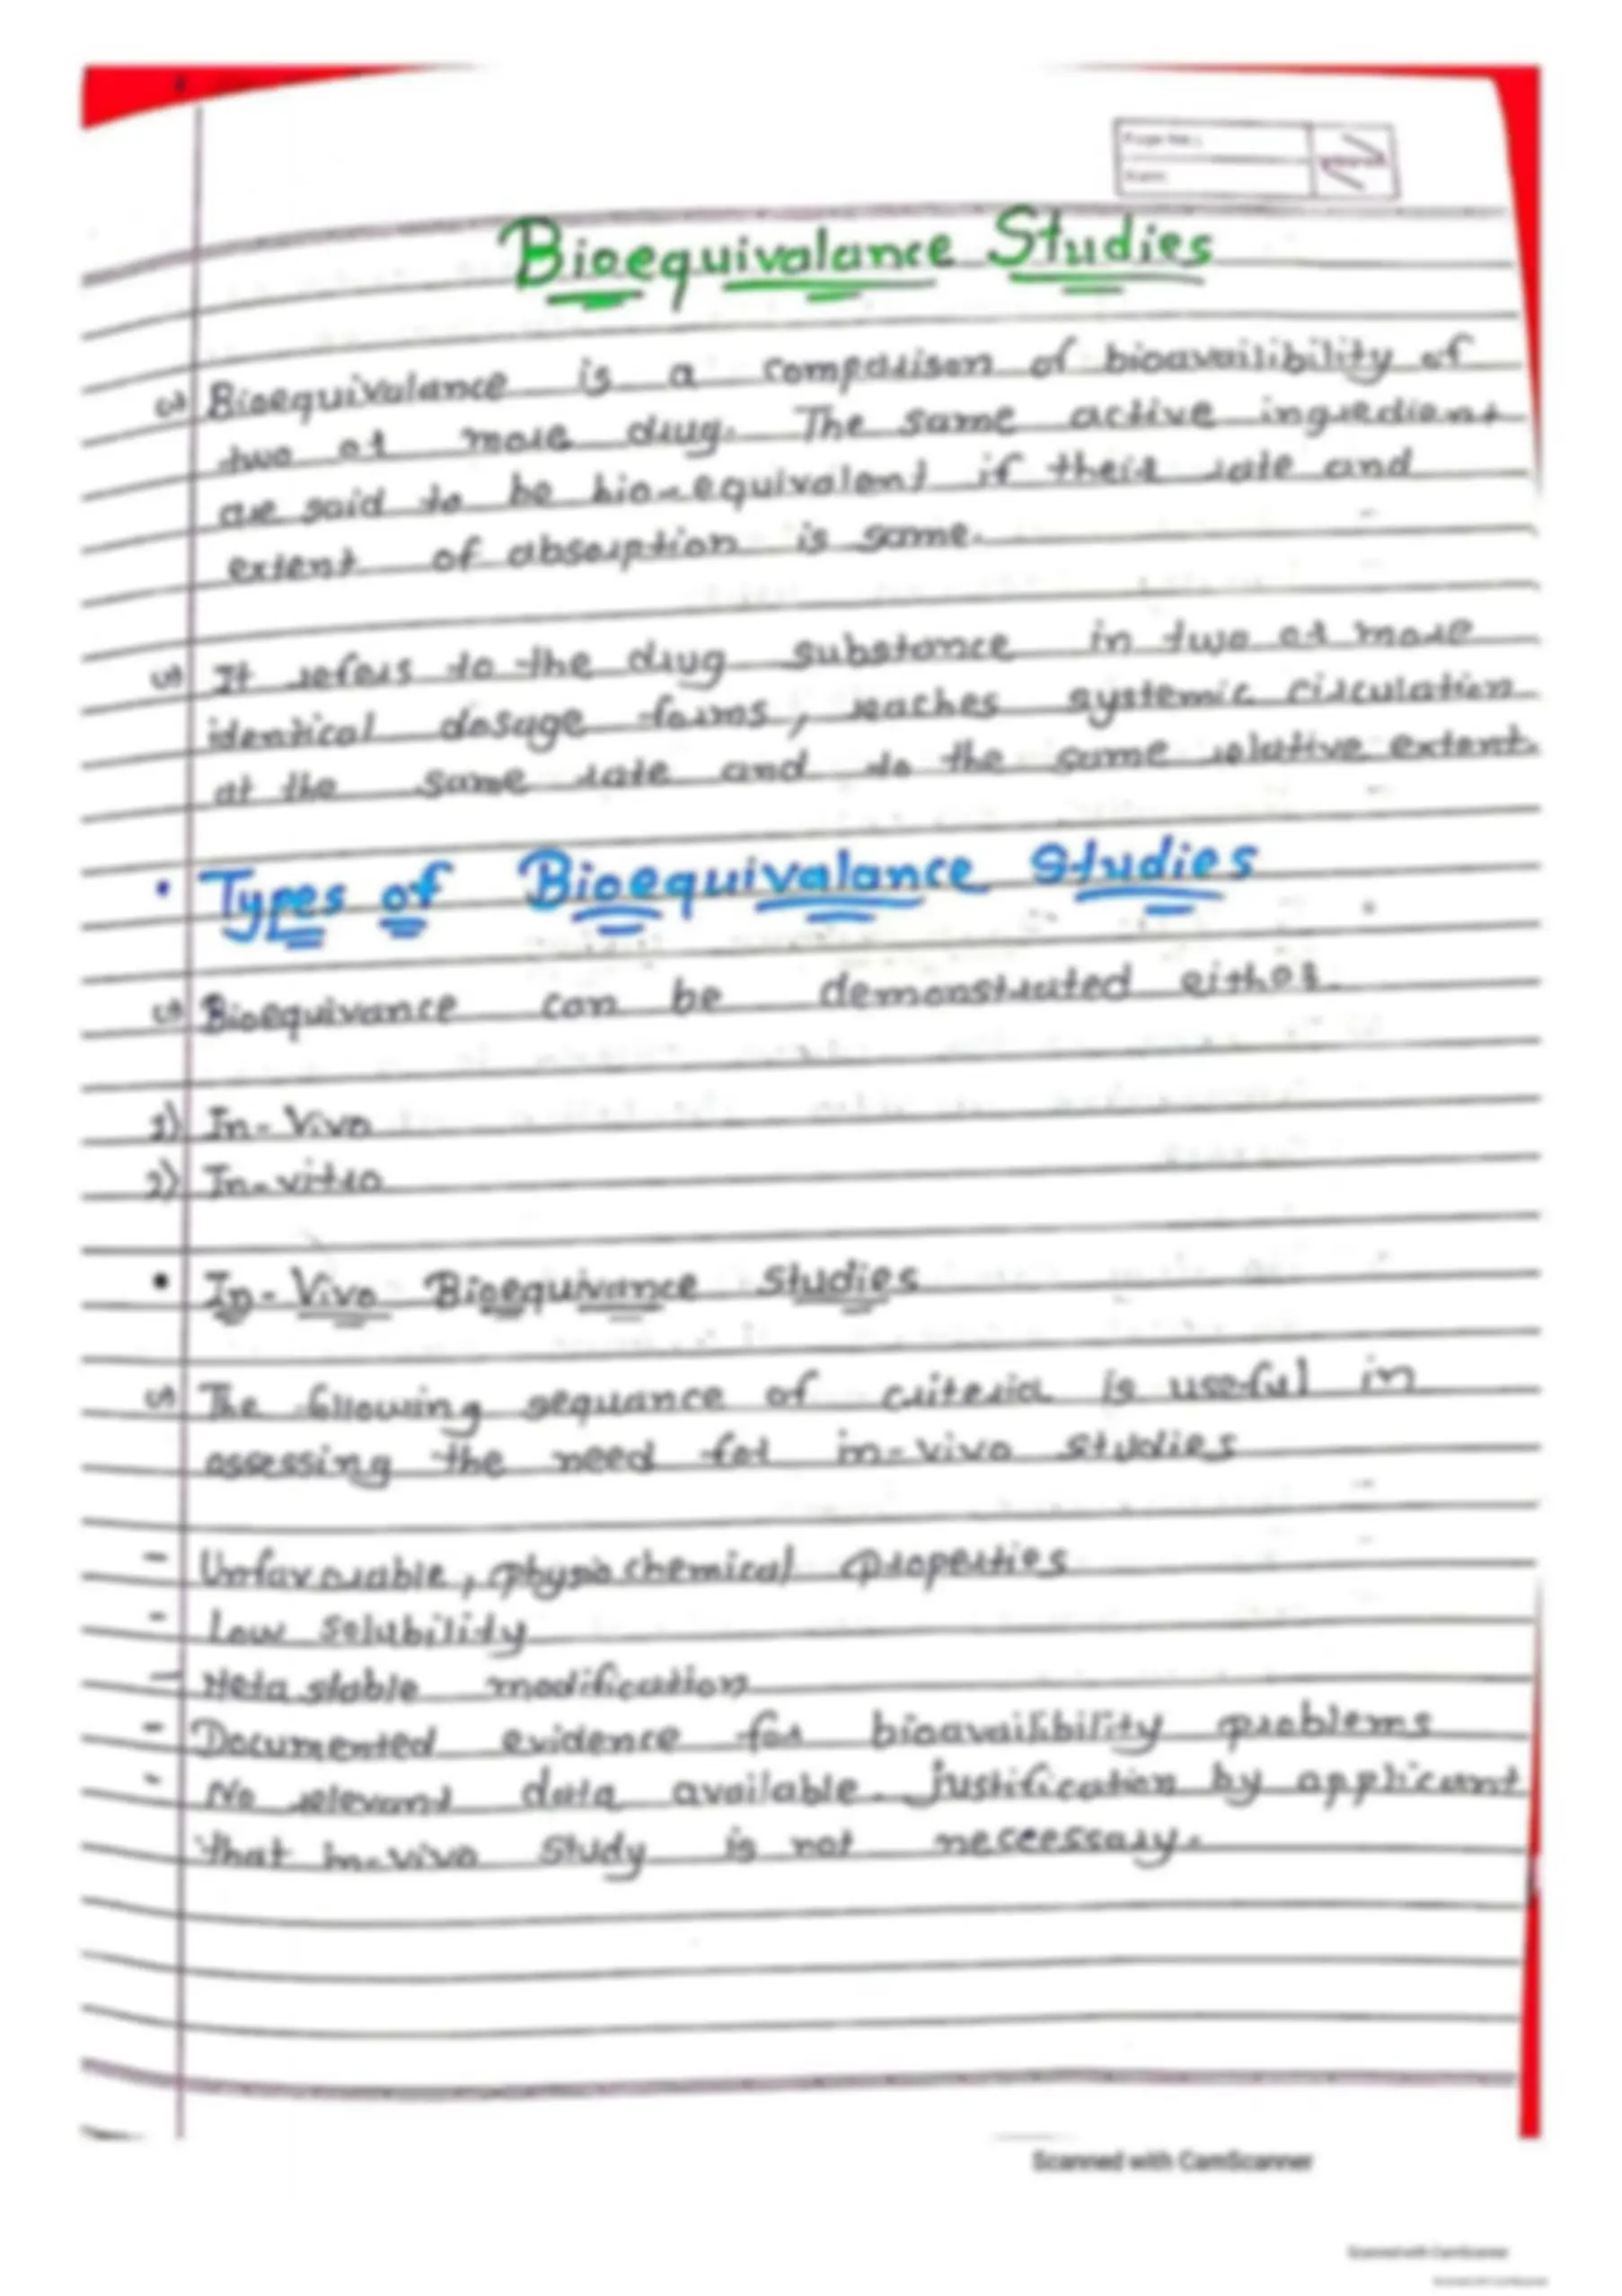 Page No.:
Date:
Bioequivalance Studies
Bioequivalance is a comparison of bioavailibility of
two or more drug. The same active ingredient
are said to be bio-equivalent if their rate and
extent of absorption is same.
It refers to the drug substance in two or more
identical dosage forms, reaches systemic circulation
at the same rate and to the same relative extent.
• Types of Bioequivalance studies
Bioequivance can be demonstrated either.
1) In-Vivo
2) In-vitro
• In-Vivo Bioequivance studies
The following sequance of criteria is useful in
assessing the need for in-vivo studies
- Unfavourable, physiochemical properties
- Low solubility
- Meta stable modification
- Documented evidence for bioavailibility problems
- No relevant data available. justification by applicant
that in-vivo study is not neccessary.
Scanned with CamScanner
Scanned with CamScanner
Scanned with CamScanner